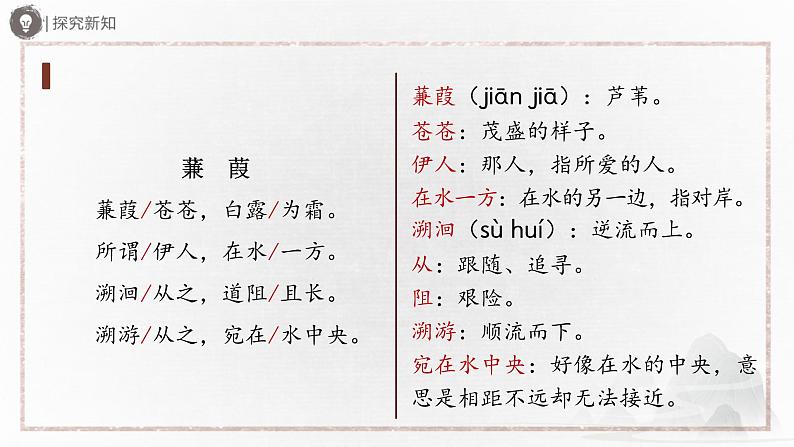 探究新知
蒹 葭
蒹葭/苍苍，白露/为霜。
所谓/伊人，在水/一方。
溯洄/从之，道阻/且长。
溯游/从之，宛在/水中央。
蒹葭（jiān jiā）：芦苇。
苍苍：茂盛的样子。
伊人：那人，指所爱的人。
在水一方：在水的另一边，指对岸。
溯洄（sù huí）：逆流而上。
从：跟随、追寻。
阻：艰险。
溯游：顺流而下。
宛在水中央：好像在水的中央，意
思是相距不远却无法接近。